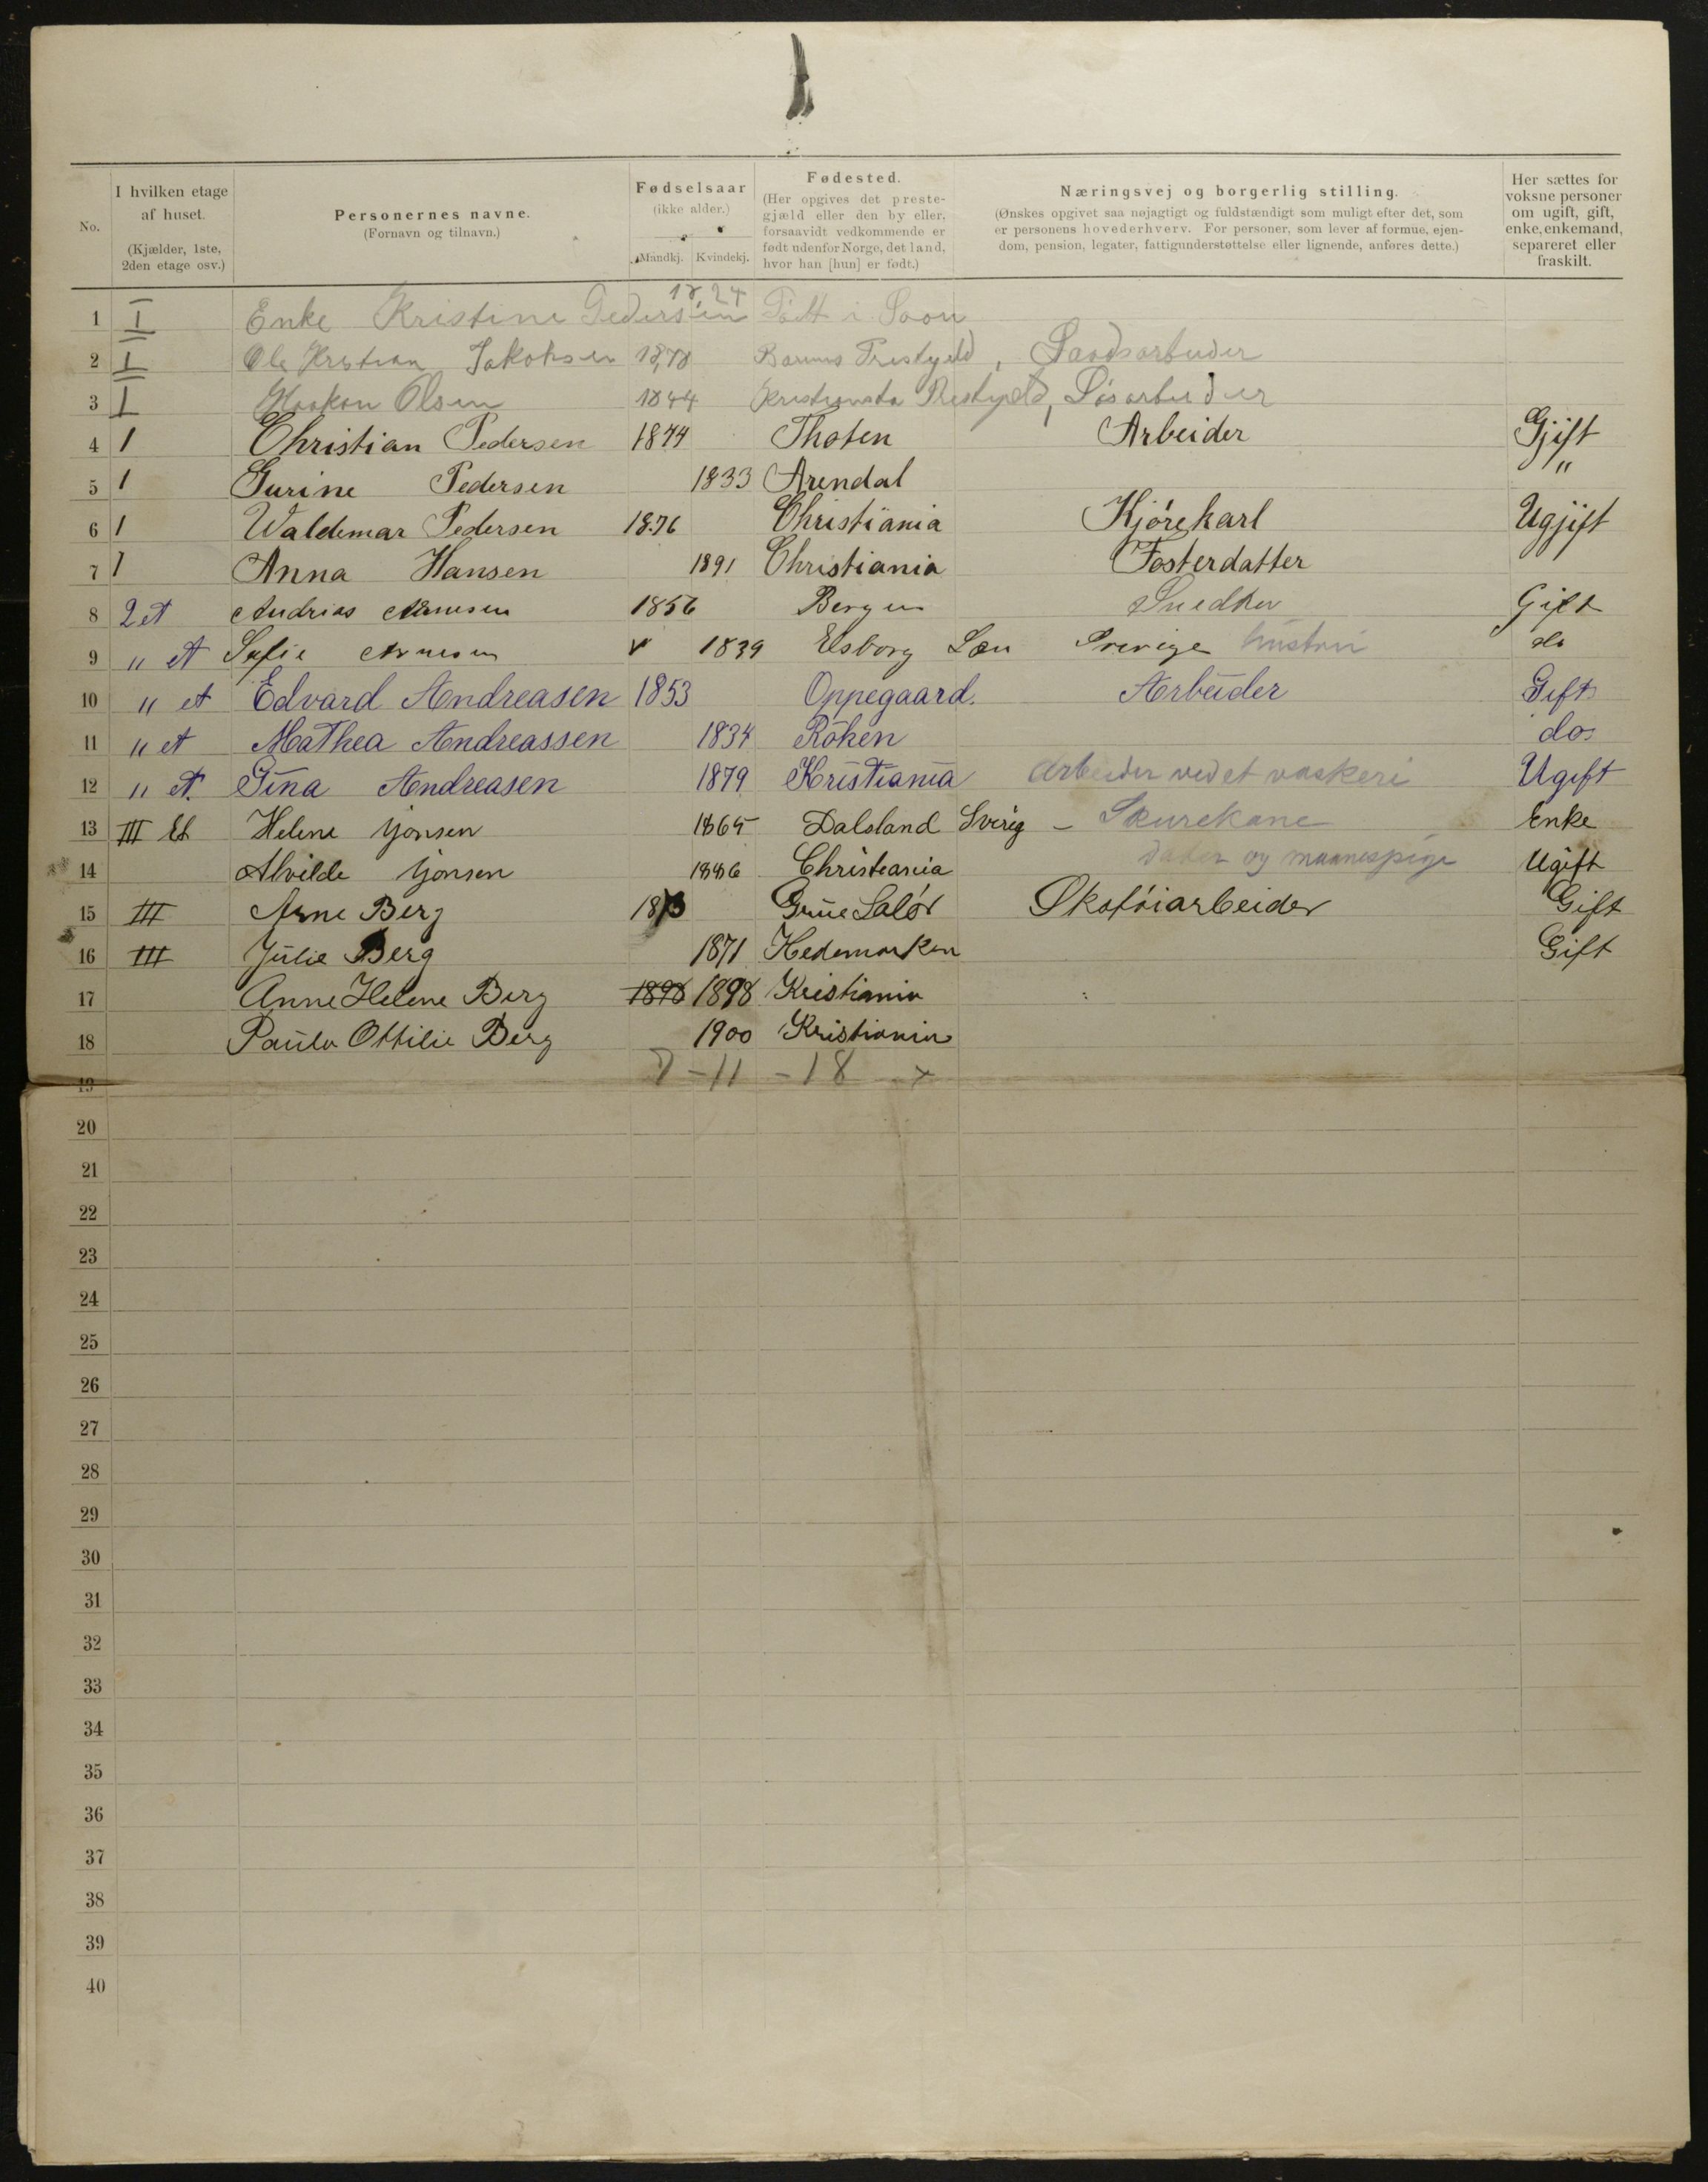 No. | I hvilken etage af huset. (Kjælder, 1ste, 2den etage osv.) | Personernes navne. (Fornavn og tilnavn.) | Fødselsaar (ikke alder.) Mandkj. Kvindekj. | Fødested. (Her opgives det prestegjæld eller den by eller, forsaavidt vedkommende er født udenfor Norge, det land, hvor han [hun] er født.) | Næringsvej og borgerlig stilling. (Ønskes opgivet saa nøjagtigt og fuldstændigt som muligt efter det, som er personens hovederhverv. For personer, som lever af formue, ejendom, pension, legater, fattigunderstøttelse eller lignende, anføres dette.) | Her sættes for voksne personer om ugift, gift, enke, enkemand, separeret eller fraskilt.
1 I Enke Kristine Pedersen 18,24 Født i Soon
2 I Ole Kristian Jakobsen 18,78 Barums Prestgeld,
3 I Haakon Olsen 1844 Prestgeld, Løsarbeider
4 1 Christian Pedersen 1844 Thoten Arbeider Gjift
5 1 Gurine Pedersen 1833 Arendal "
6 1 Waldemar Pedersen 18.76 Christiania Kjørekarl Ugjift
7 1 Anna Hansen 1891 Christiania Fosterdatter
8 2 et Andrias Arnesen 1856 Bergen Snedker Gift
9 " et Sofie Arnesen 1839 Elsborg Læn Sverige hustru do
10 " et Edvard Andreasen 1853 Oppegaard. Arbeider Gift
11 " et Mathea Andreassen 1834 Röken do.
12 " et. Gina Andreasen 1879 Kristiania Arbeider ved et vaskeri Ugift
13 III Et Helene Jonsen 1865 Dalsland Sverig - Skurekone Enke
14 Alvilde Jonsen 1886 Christeania Ugift
15 III Arne Berg 1873 Grue Solør Skotøiarbeider Gift
16 III Julie Berg 1871 Hedemarken Gift
17 Anne Helene Berg 1898 1898 Kristiania
18 Paula Ottilie Berg 1900 Kristiania
19 7 - 11 - 18 x
20
21
22
23
24
25
26
27
28
29
30
31
32
33
34
35
36
37
38
39
40